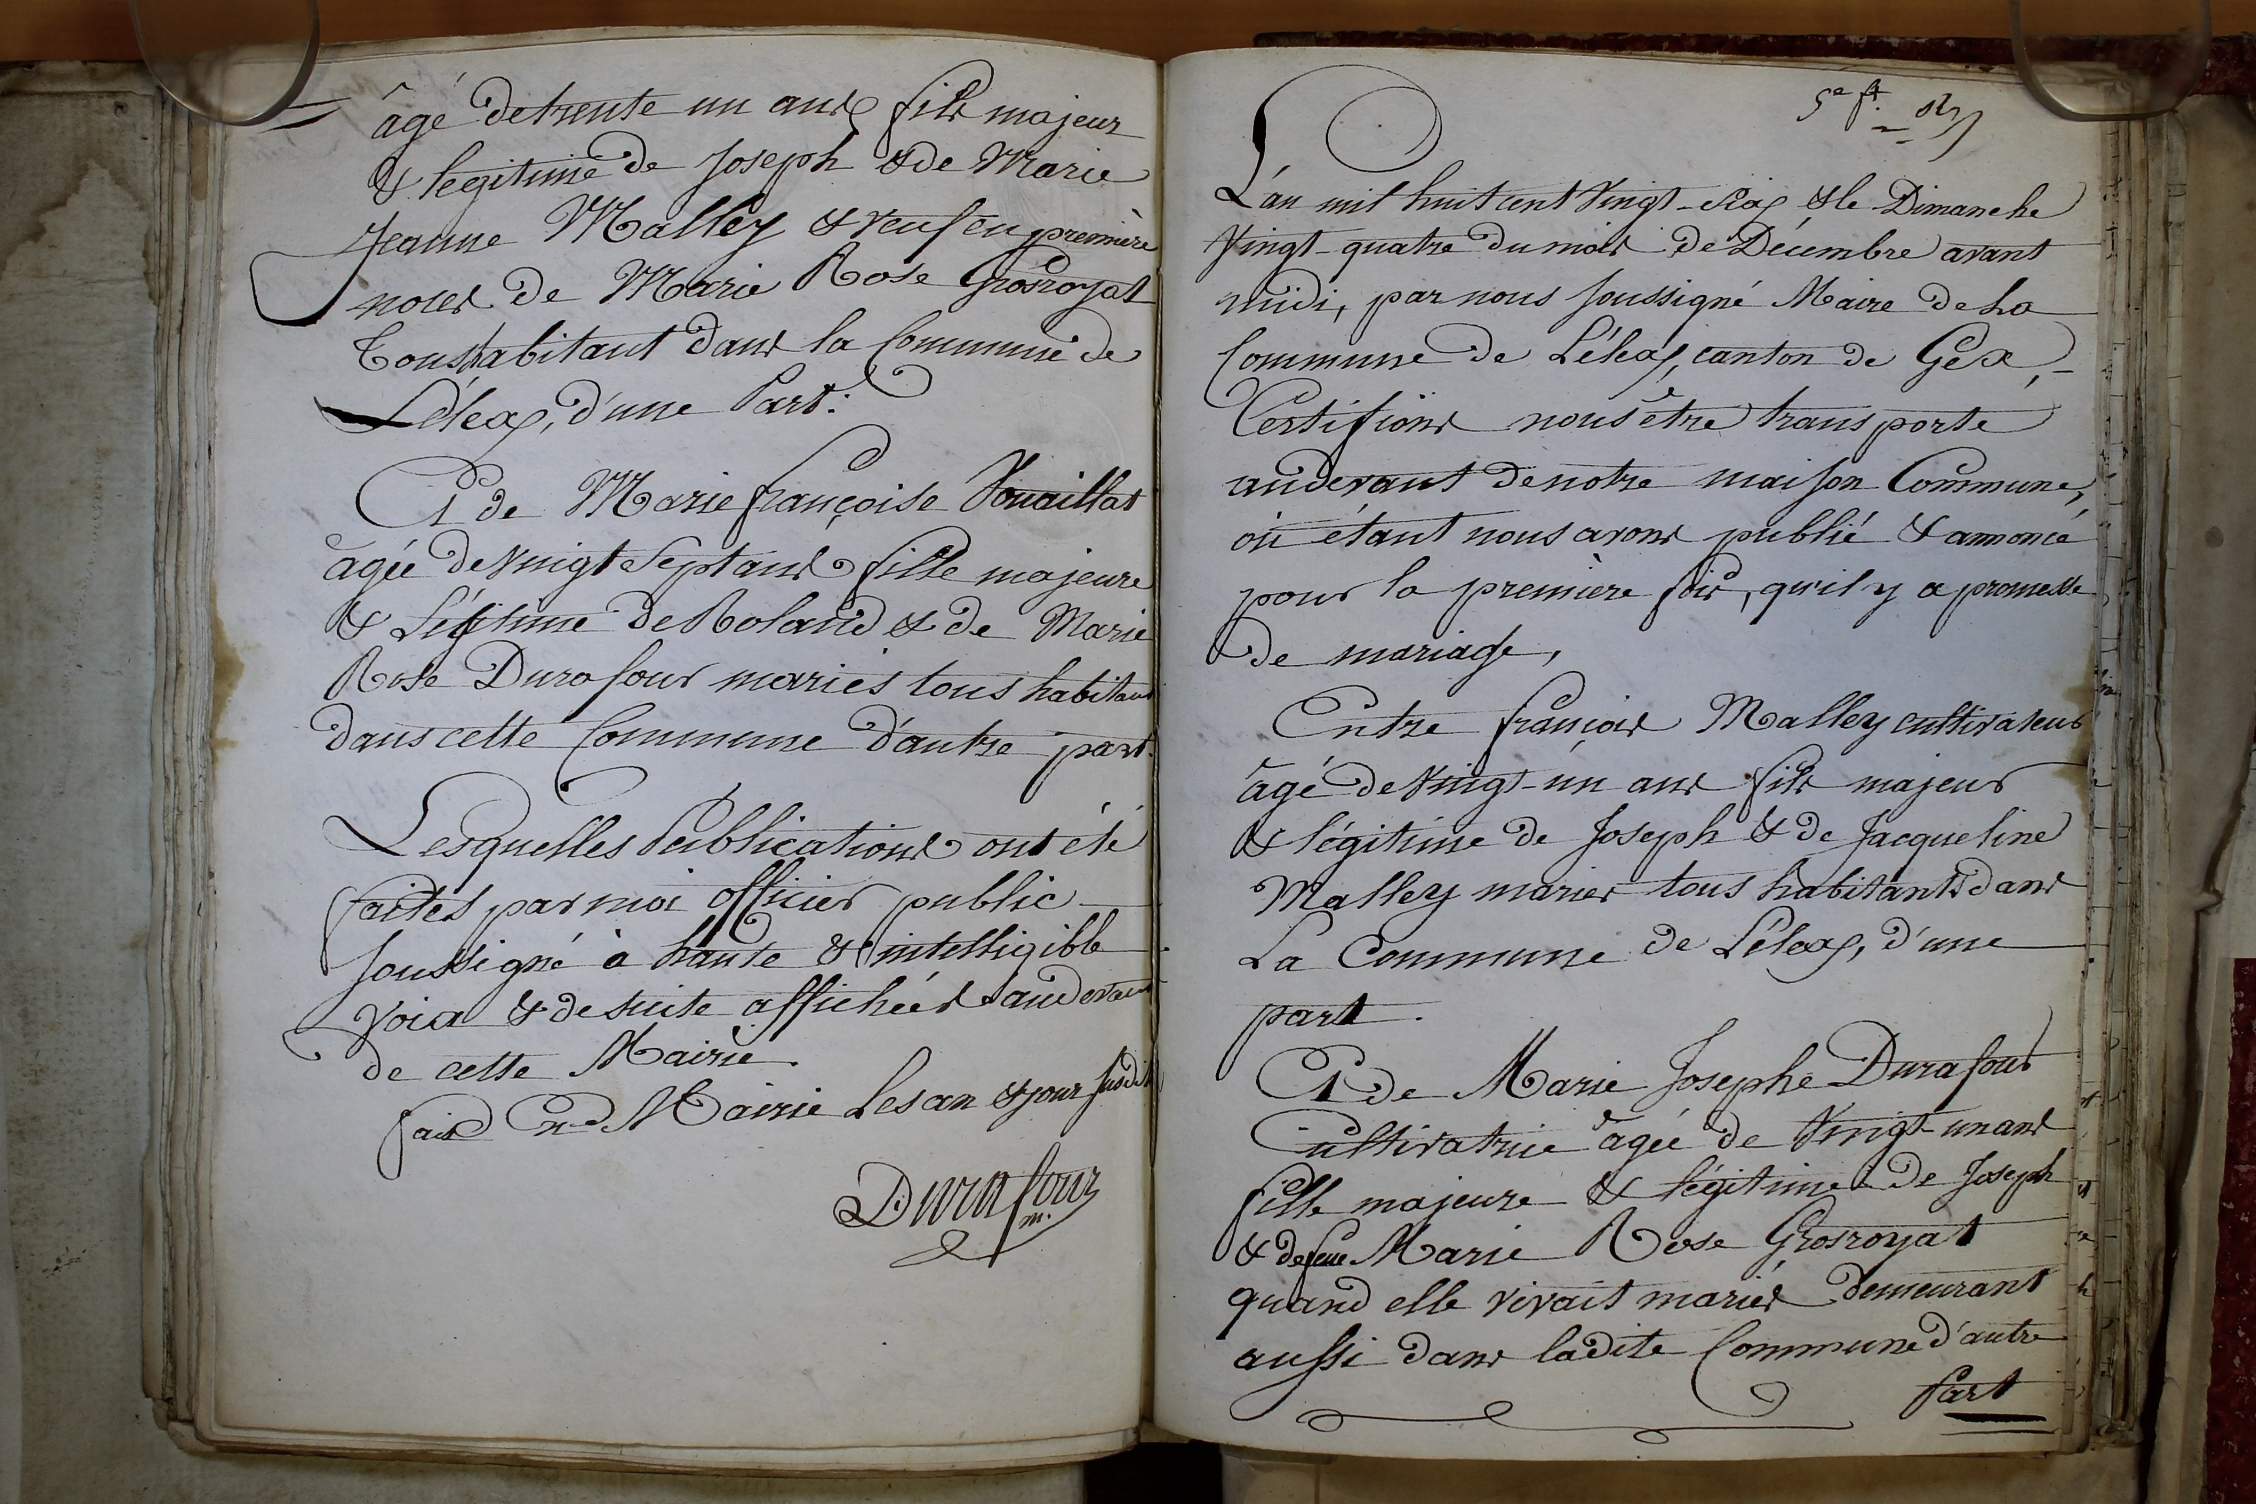 âgé de trente un ans fils majeur
& légitime de Joseph & de Marie
Jeanne Malley & veuf en première
noces de Marie Rose Grosroyat
Tous habitant dans la Commune de
Lélex, d'une Part.
Et de Marie françoise Vouaillat
agée de vingt Sept ans fille majeure
& Légitime de Roland & de Marie
Rose Durafour mariés tous habitans
dans cette Commune d'autre part.
Lesquelles Publications ont été
faites par moi officier public
soussigné à haute & intelligible
voix & de suite affichées audevant
de cette Mairie.
fait En Mairie Les an & jour susdit
Durafour
m.
5e ft.
L'an mil huit cent Vingt-Six & le Dimanche
Vingt-quatre du mois de Décembre avant
midi, par nous soussigné Maire de La
Commune de Lélex, canton de Gex,
Certifions nous être transporte
audevant de notre maison Commune,
où étant nous avons publié & annoncé
pour la première fois, qu'il y a promesse
de mariage,
Entre françois Malley cultivateur
âgé de Vingt-un ans fils majeur
& légitime de Joseph & de Jacqueline
Malley mariés tous habitants dans
La Commune de Lélex, d'une
part.
Et de Marie Josephe Durafour
Cultivatrice âgée de Vingt-un ans
fille majeure & légitime de Joseph
& de feue Marie Rose Grosroyat
quand elle vivait mariés demeurant
aussi dans ladite Commune d'autre
Part